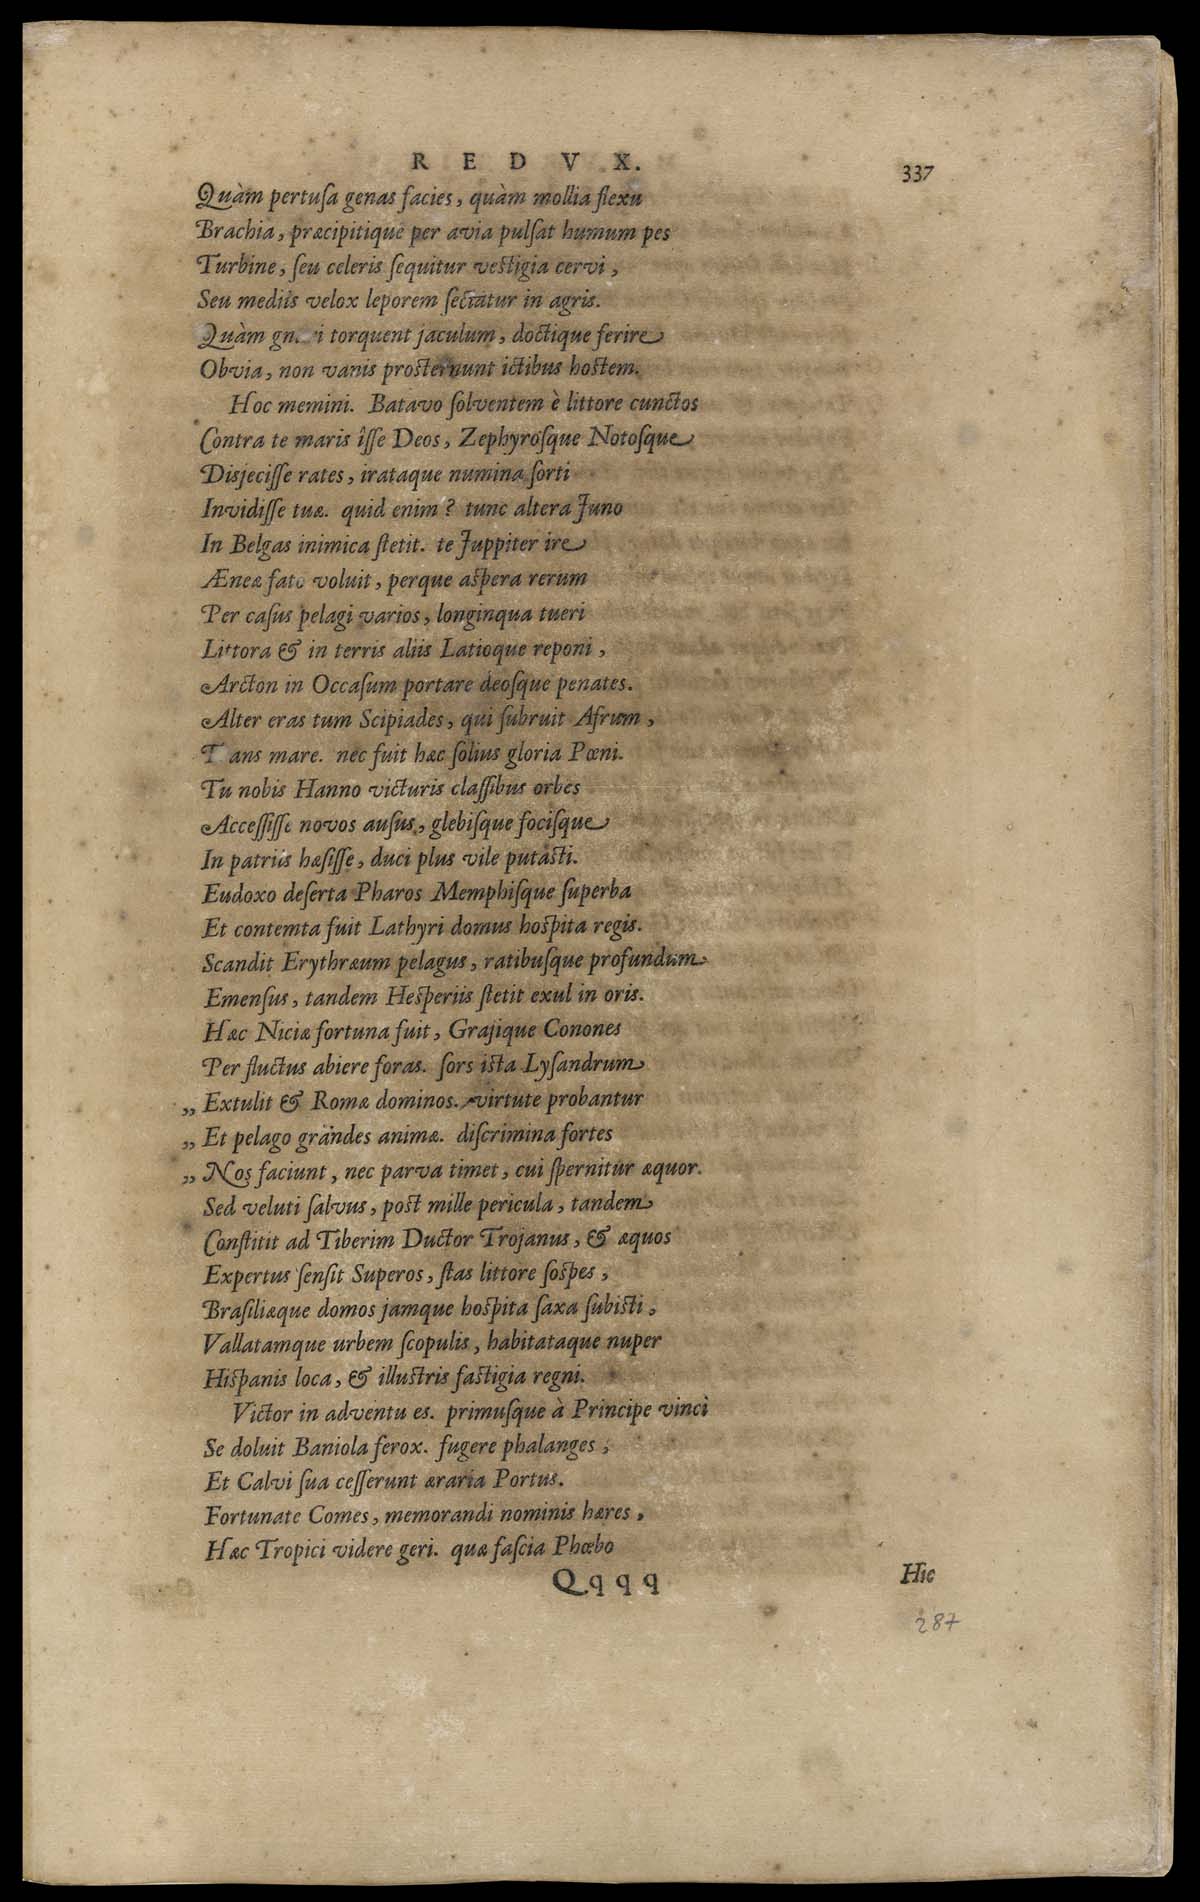 REDVX.
337
Quàm pertusa genas facies, quàm mollia flexu
Brachia, præcipitique per avia pulsat humum pes
Turbine, seu celeris sequitur vestigia cervi,
Seu mediis velox leporem sectatur in agris.
Quàm torquent jaculum, doctique ferire
Obvia, non vanis prosternunt ictibus hostem.
Hoc memini. Batavo solventem è littore cunctos
Contra te maris îsse Deos, Zephyrosque Notosque
Disjecisse rates, irataque numina sorti
Invidisse tuæ. quid enim? tunc altera Juno
In Belgas inimica stetit. te Juppiter ire
Æneæ fato voluit, perque aspera rerum
Per casus pelagi varios, longinqua tueri
Littora & in terris aliis Latioque reponi,
Arcton in Occasum portare deosque penates.
Alter eras tum Scipiades, qui subruit Afrum,
Trans mare. nec fuit hæc solius gloria Pœni.
Tu nobis Hanno victuris classibus orbes
Accessisse novos ausus, glebisque focisque
In patriis hæsisse, duci plus vile putasti.
Eudoxo deserta Pharos Memphisque superba
Et contemta fuit Lathyri domus hospita regis.
Scandit Erythræum pelagus, ratibusque profundum
Emensus, tandem Hesperiis stetit exul in oris.
Hæc Niciæ fortuna fuit, Grajique Conones
Per fluctus abiere foras. sors ista Lysandrum
„ Extulit & Romæ dominos. virtute probantur
„ Et pelago grandes animæ. discrimina fortes
„ Nos faciunt, nec parva timet, cui spernitur æquor.
Sed veluti salvus, post mille pericula, tandem
Constitit ad Tiberim Ductor Trojanus, & æquos
Expertus sensit Superos, stas littore sospes,
Brasiliæque domos jamque hospita saxa subisti,
Vallatamque urbem scopulis, habitataque nuper
Hispanis loca, & illustris fastigia regni.
Victor in adventu es. primusque à Principe vinci
Se doluit Baniola ferox. fugere phalanges,
Et Calvi sua cesserunt æraria Portus.
Fortunate Comes, memorandi nominis hæres,
Hæc Tropici videre geri. quæ fascia Phœbo
Qqqq
Hic
287